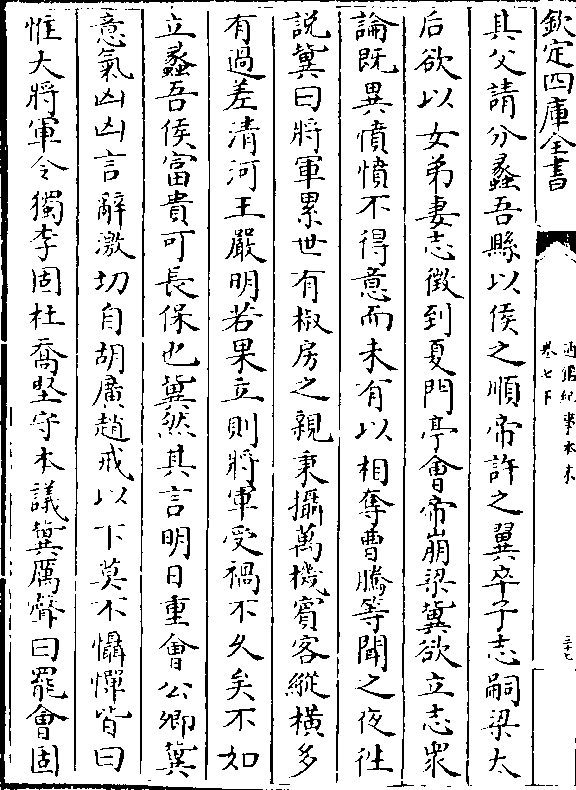 欽定四庫全書
通鑑紀事本末
卷七下
三十七
其父請分蠡吾縣以侯之順帝許之翼卒子志嗣梁太
后欲以女弟妻志徵到夏門亭會帝崩梁冀欲立志衆
論既異憤憤不得意而未有以相奪曹騰等聞之夜徃
說冀曰將軍累世有椒房之親秉攝萬機賓客縱橫多
有過差清河王嚴明若果立則將軍受禍不久矣不如
立蠡吾侯富貴可長保也冀然其言明日重會公卿冀
意氣凶凶言辭激切自胡廣趙戒以下莫不懾憚皆曰
惟大將軍令獨李固杜喬堅守本議冀厲聲曰罷會固